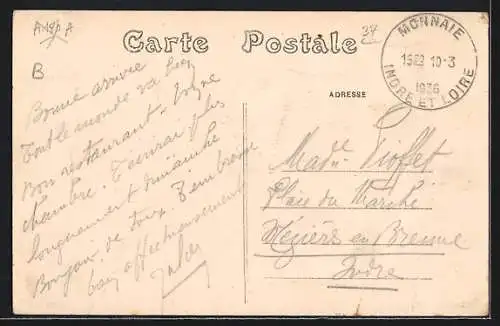 37
B
Carte Postale
MONNAIE
15 10-3
1936
INDRE ET LOIRE
ADRESSE
Bonne arrivée
Tout le monde va bien
Bon restaurant. Bonne
chambre. T'écrirai plus
longuement dimanche
Bonjour de tous. T'embrasse
bien affectueusement
Madm Pioffet
Place du Marché
Mézières en Brenne
Indre